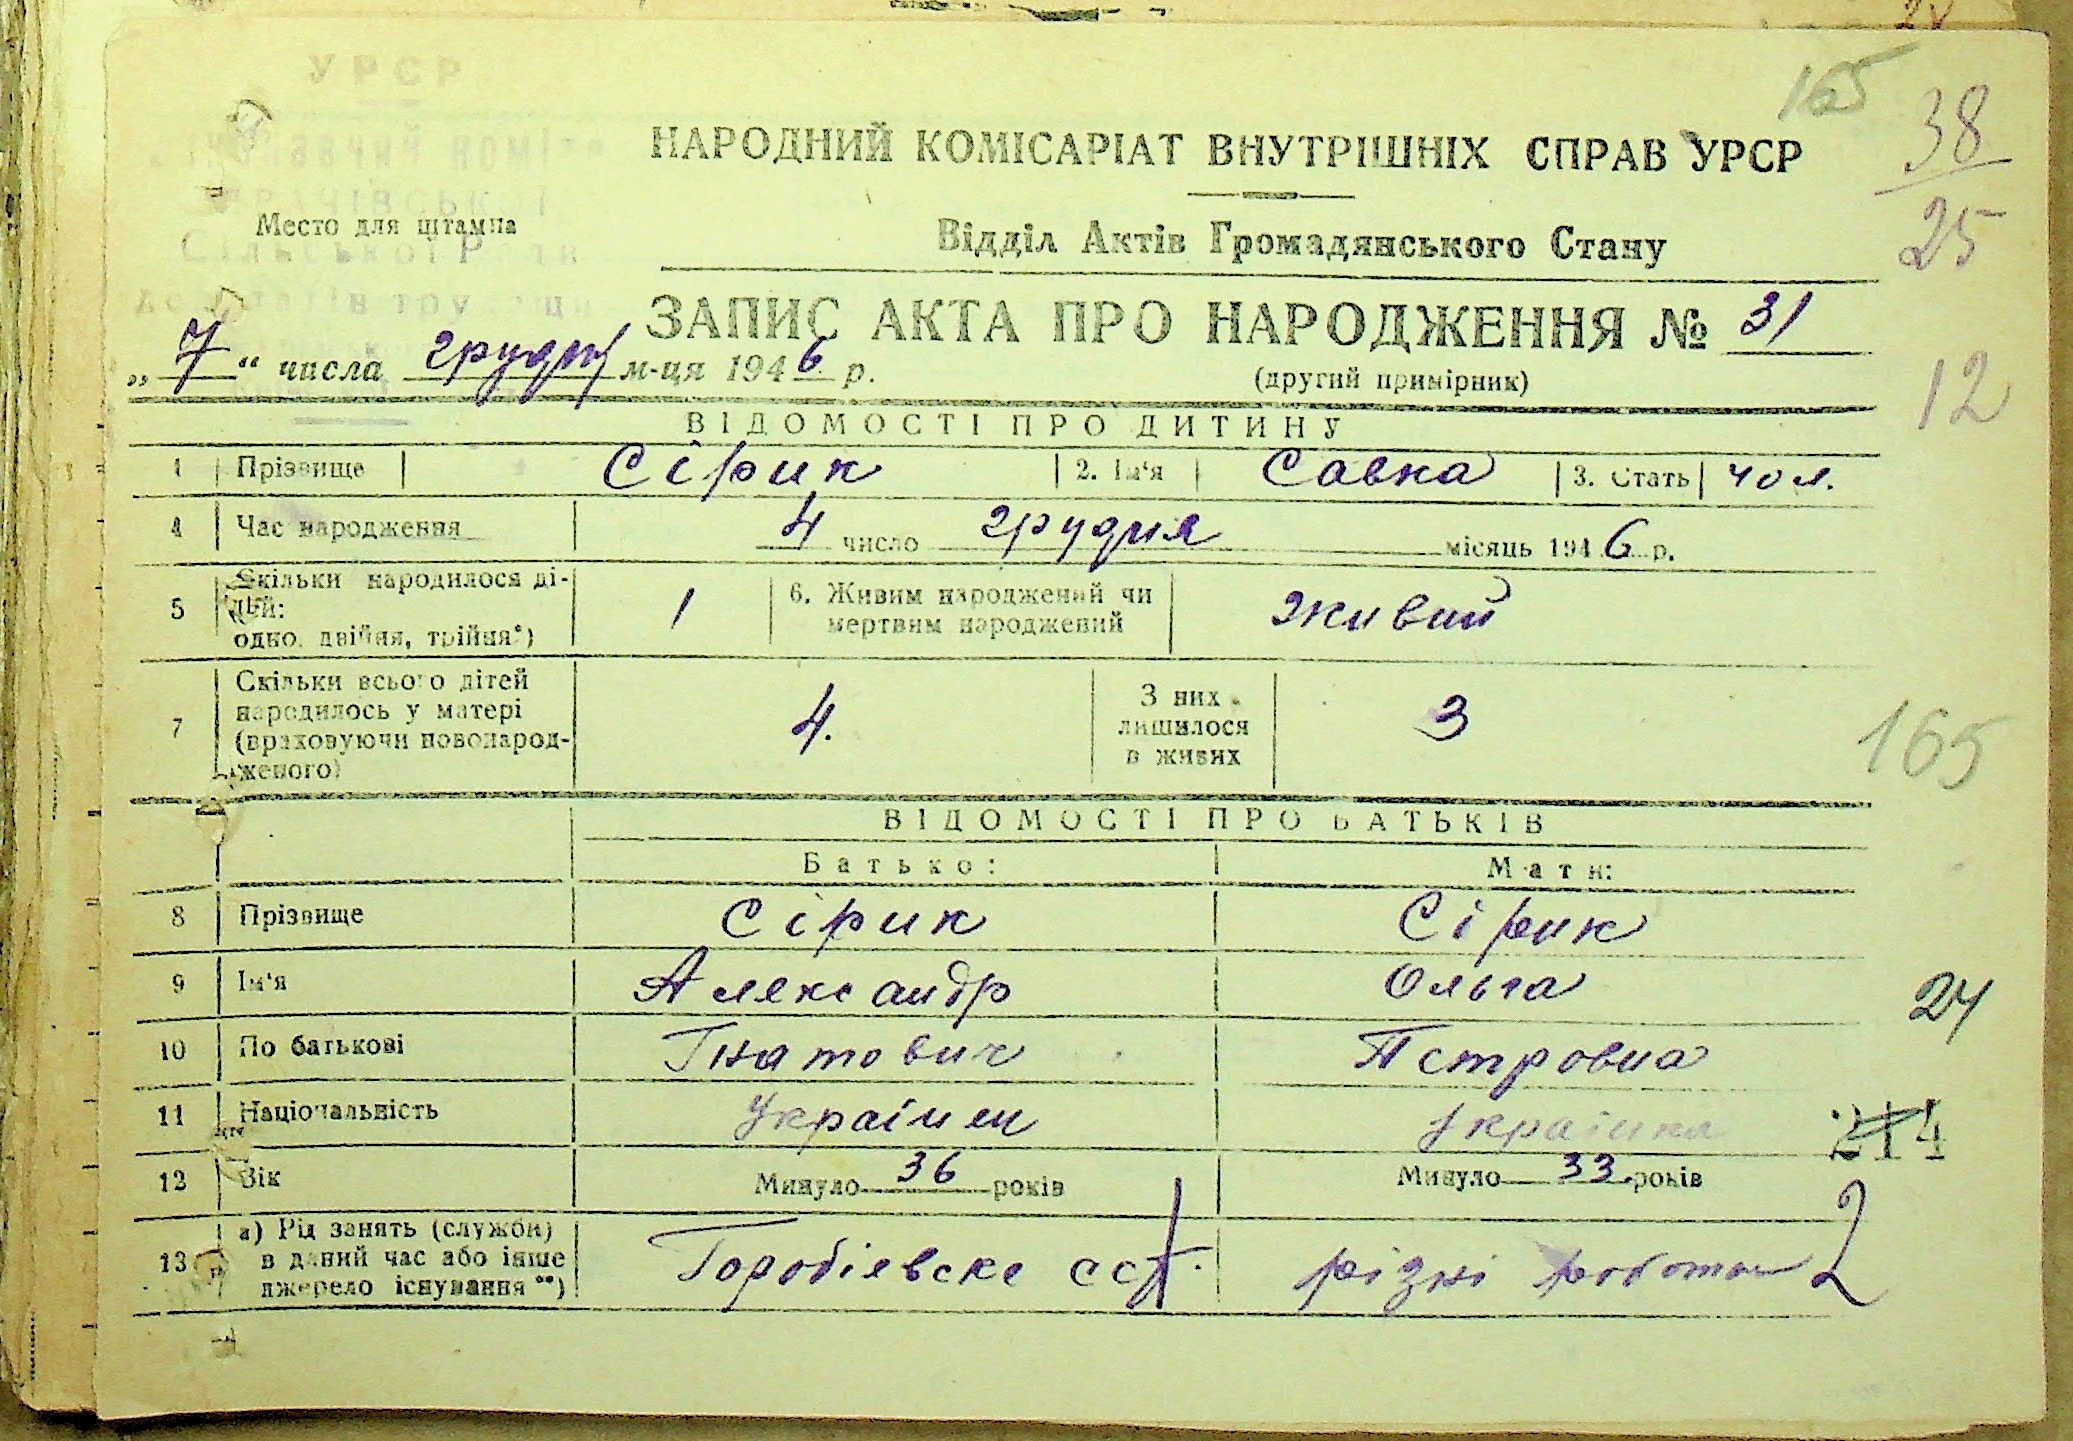 УРСР
165
38
25
НАРОДНИЙ КОМІСАРІАТ ВНУТРІШНІХ СПРАВ УРСР
Место для штампа
Відділ Актів Громадянського Стану
ЗАПИС АКТА ПРО НАРОДЖЕННЯ № 31
„7“ числа грудня м-ця 1946 р.
(другий примірник)
12
ВІДОМОСТІ ПРО ДИТИНУ
1 Прізвище Сірик 2. Ім'я Савка 3. Стать чол.
4 Час народження 4 число грудня місяць 1946 р.
5 Скільки народилося дітей: одно, двійня, трійня*) 1 6. Живим народжений чи мертвим народжений живий
7 Скільки всього дітей народилось у матері (враховуючи новонародженого) 4. З них лишилося в живих 3
165
ВІДОМОСТІ ПРО БАТЬКІВ
Батько: Мати:
8 Прізвище Сірик Сірик
9 Ім'я Александр Ольга
24
10 По батькові Гнатович Петровна
11 Національність Українец Українка
214
12 Вік Минуло 36 років Минуло 33 років
13 а) Рід занять (служби) в даний час або інше джерело існування **) різні
2